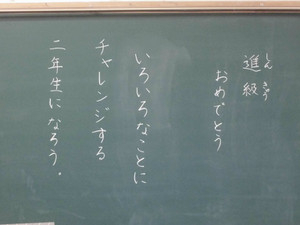 進級
しんきゅう
おめでとう
いろいろなことに
チャレンジする
二年生になろう。